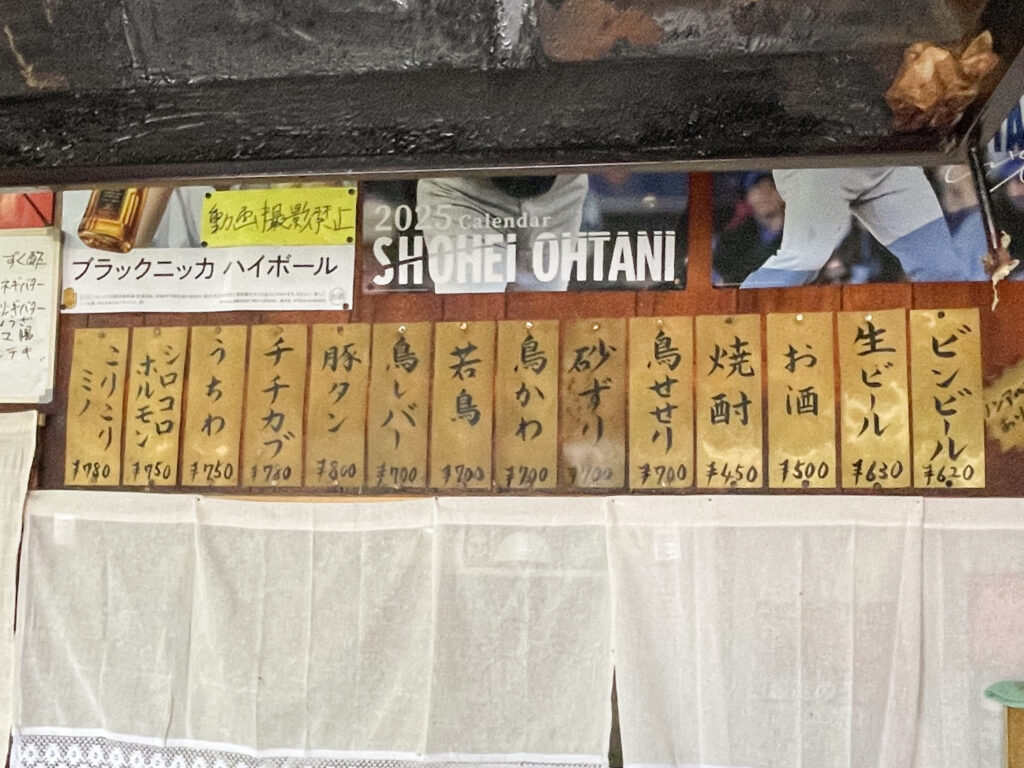 動画撮影禁止
ブラックニッカ ハイボール
2025 Calendar
SHOHEI OHTANI
ビンビール
¥620
生ビール
¥630
お酒
¥500
焼酎
¥450
鳥せせり
¥700
砂ずり
¥700
鳥かわ
¥700
若鳥
¥700
鳥レバー
¥700
豚タン
¥800
チチカブ
¥780
うちわ
¥750
シロコロ
ホルモン
¥750
こりこり
ミノ
¥780